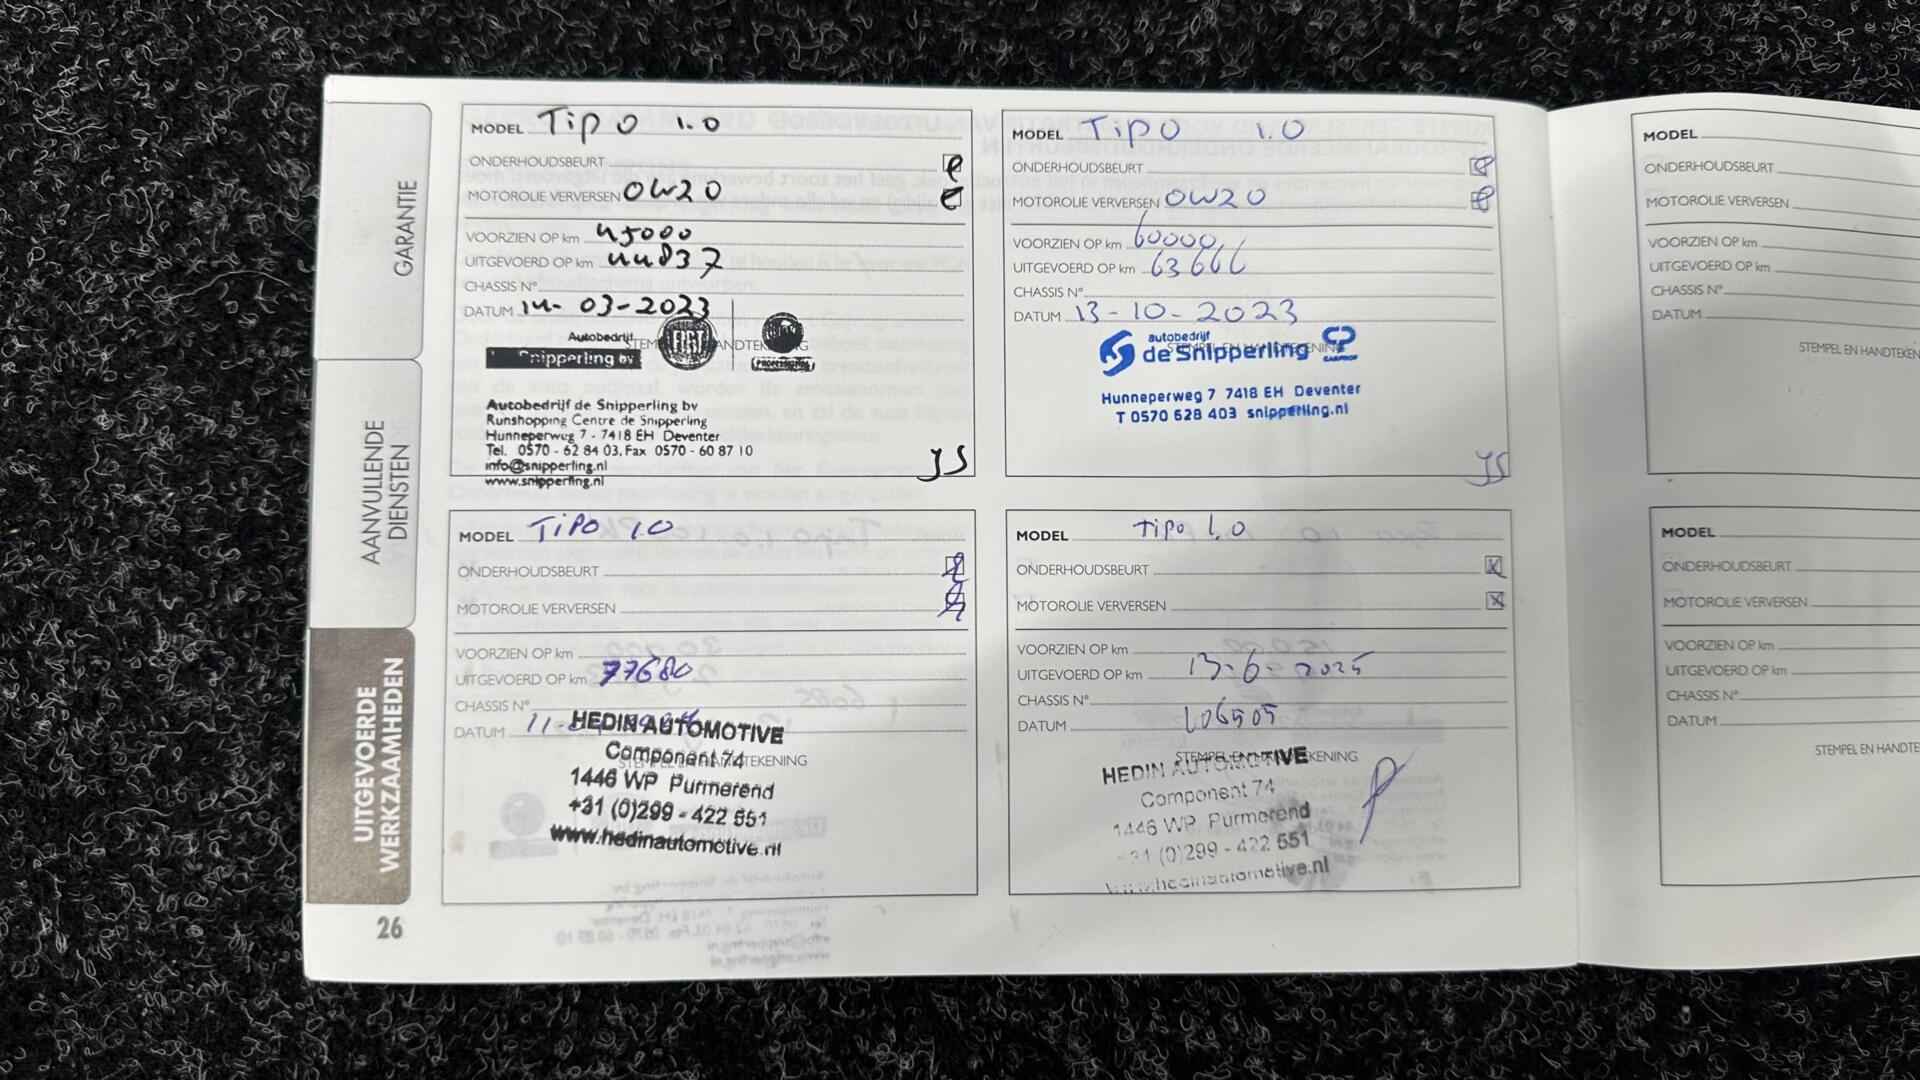 GARANTIE
AANVULLENDE
DIENSTEN
UITGEVOERDE
WERKZAAMHEDEN
26
MODEL Tipo 1.0
ONDERHOUDSBEURT
MOTOROLIE VERVERSEN 0W20
VOORZIEN OP km 45000
UITGEVOERD OP km 44837
CHASSIS N°
DATUM 14-03-2023
STEMPEL EN HANDTEKENING
Autobedrijf
Snipperling bv
FIAT
Autobedrijf de Snipperling bv
Runshopping Centre de Snipperling
Hunneperweg 7 - 7418 EH Deventer
Tel. 0570 - 62 84 03, Fax 0570 - 60 87 10
info@snipperling.nl
www.snipperling.nl
JS
MODEL Tipo 1.0
ONDERHOUDSBEURT
MOTOROLIE VERVERSEN 0W20
VOORZIEN OP km 60000
UITGEVOERD OP km 63666
CHASSIS N°
DATUM 13-10-2023
STEMPEL EN HANDTEKENING
autobedrijf
de Snipperling
CARPROF
Hunneperweg 7 7418 EH Deventer
T 0570 628 403 snipperling.nl
JS
MODEL TIPO 1.0
ONDERHOUDSBEURT
MOTOROLIE VERVERSEN
VOORZIEN OP km
UITGEVOERD OP km 77680
CHASSIS N°
DATUM 11-
STEMPEL EN HANDTEKENING
HEDIN AUTOMOTIVE
Component 74
1446 WP Purmerend
+31 (0)299 - 422 551
www.hedinautomotive.nl
MODEL Tipo 1.0
ONDERHOUDSBEURT
MOTOROLIE VERVERSEN
VOORZIEN OP km
UITGEVOERD OP km 13-6-2025
CHASSIS N°
DATUM 106505
STEMPEL EN HANDTEKENING
HEDIN AUTOMOTIVE
Component 74
1446 WP Purmerend
+31 (0)299 - 422 551
www.hedinautomotive.nl
MODEL
ONDERHOUDSBEURT
MOTOROLIE VERVERSEN
VOORZIEN OP km
UITGEVOERD OP km
CHASSIS N°
DATUM
STEMPEL EN HANDTEKEN
MODEL
ONDERHOUDSBEURT
MOTOROLIE VERVERSEN
VOORZIEN OP km
UITGEVOERD OP km
CHASSIS N°
DATUM
STEMPEL EN HANDTE